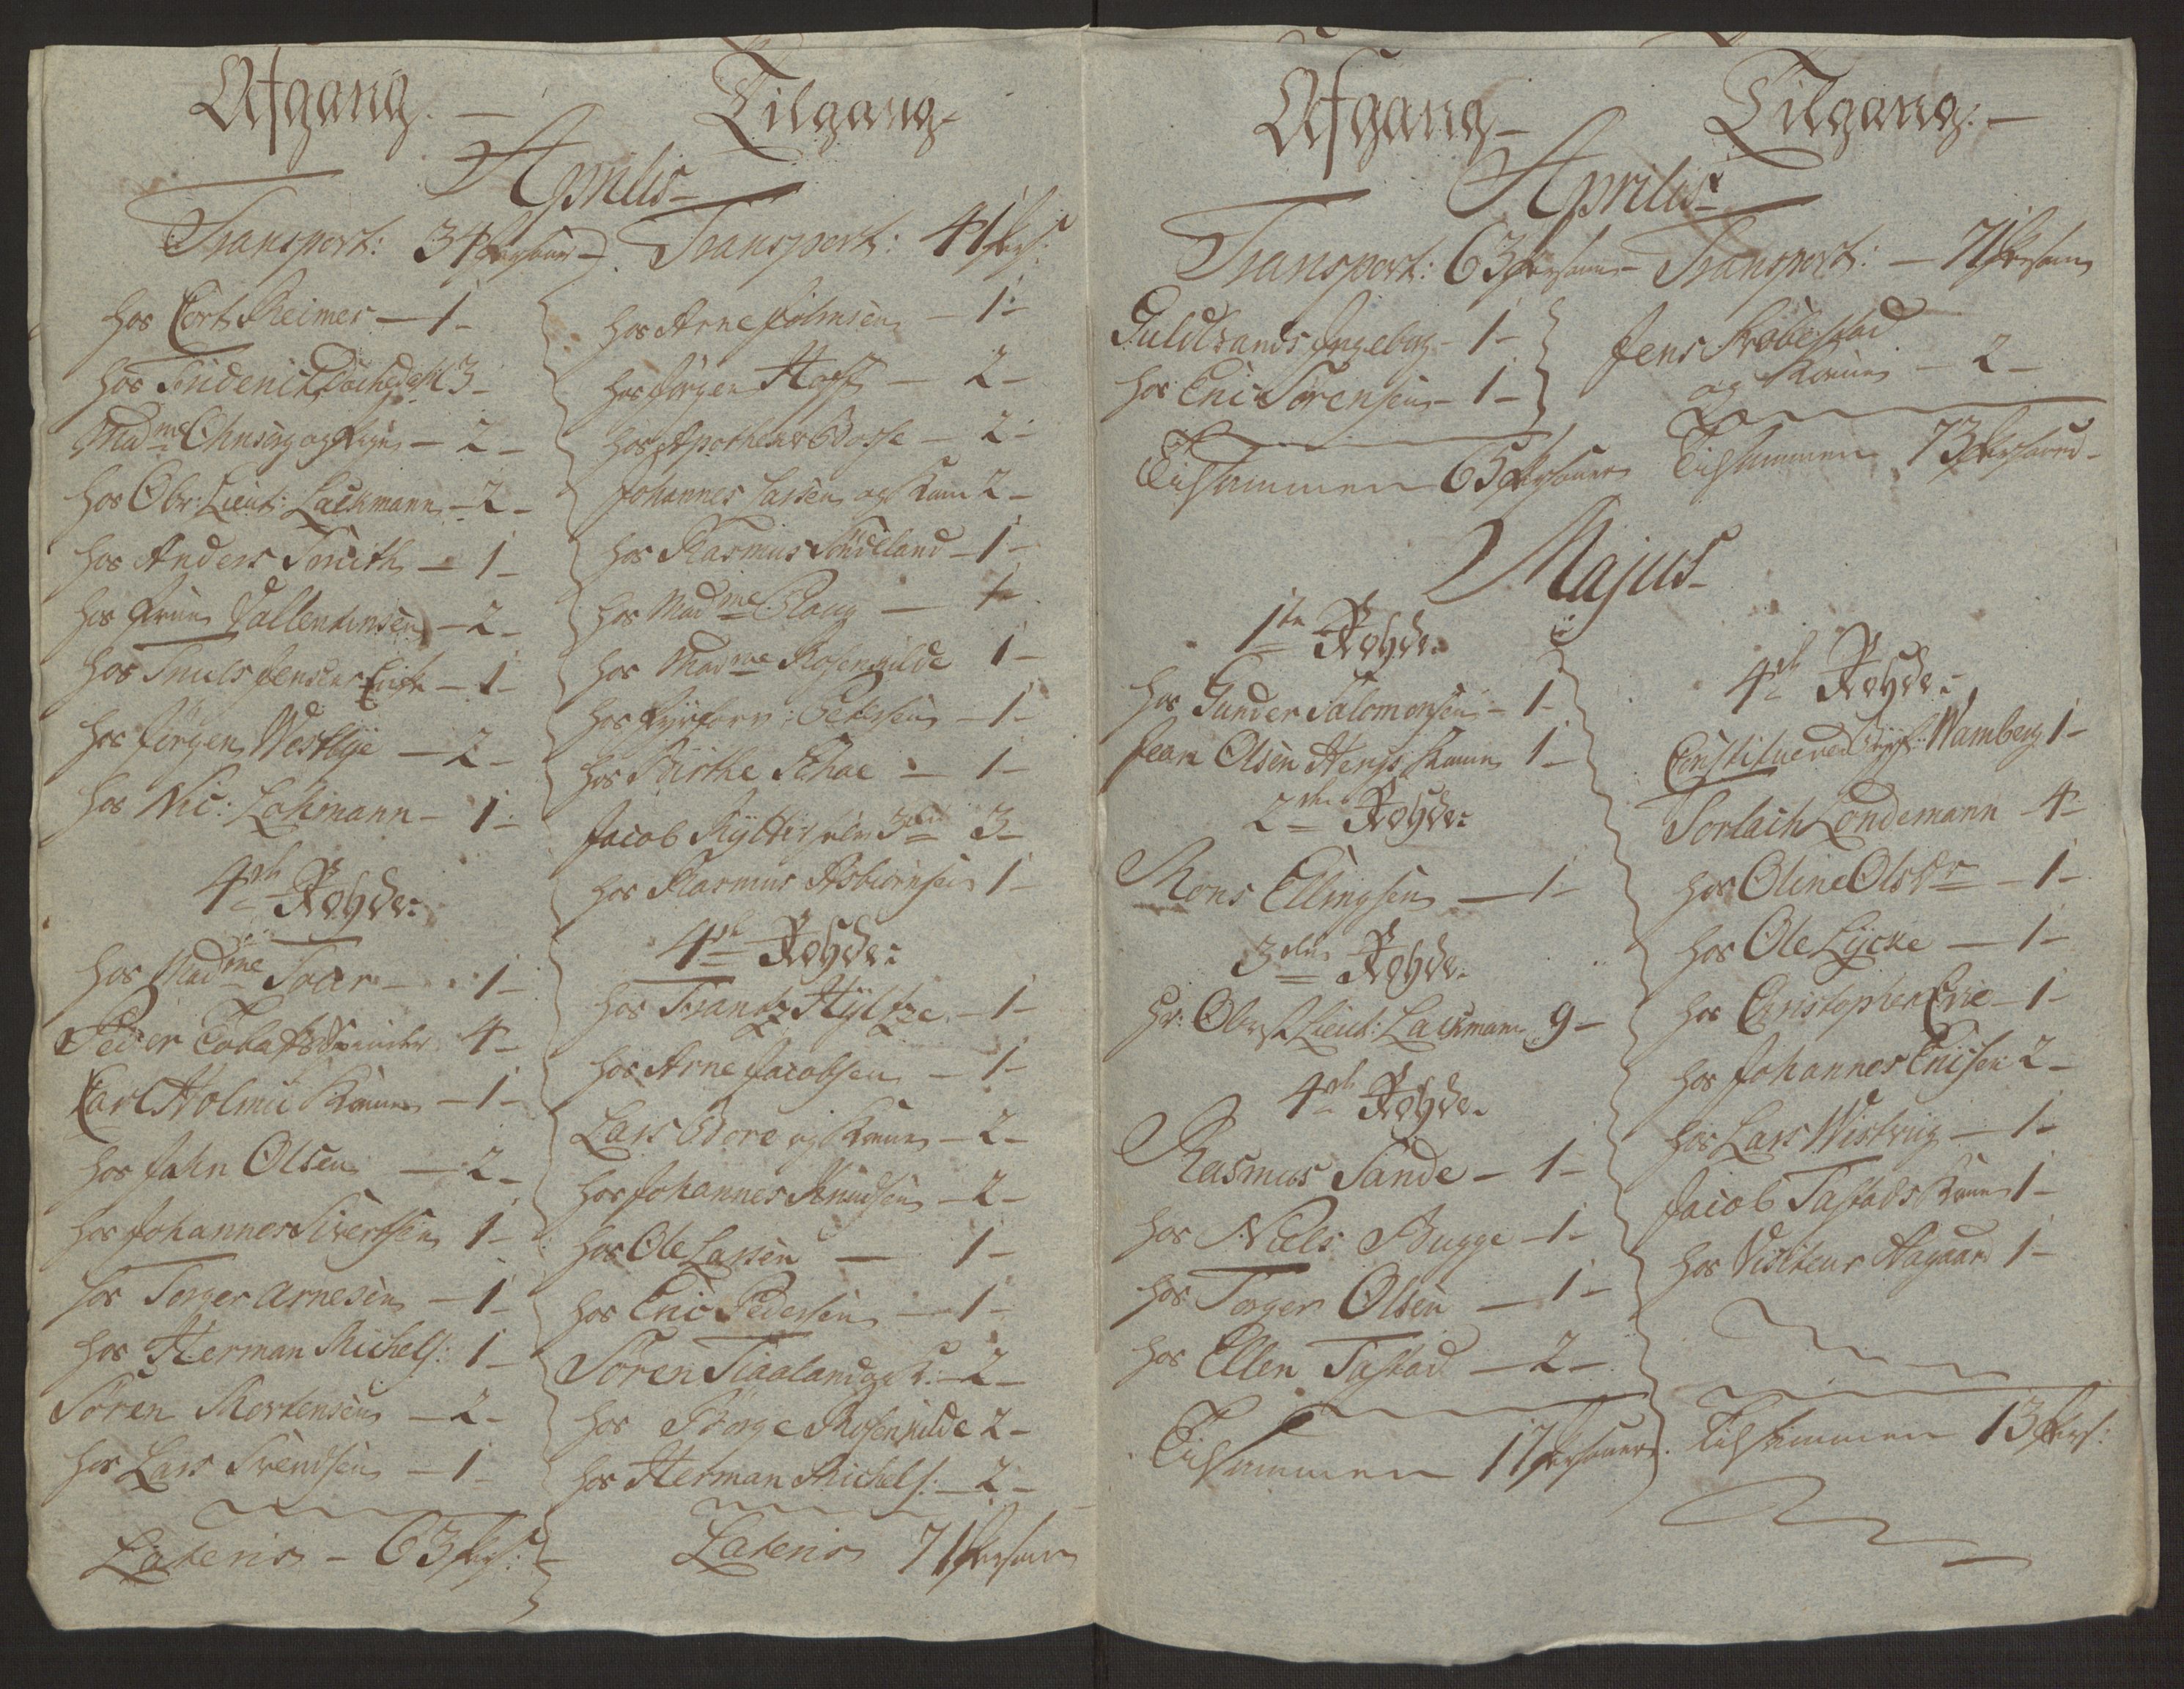 Afgang.
Aprilis
Transport: 34 Persouner
hos Cort Reimer — 1 -
hos Friderich 3 -
Madme og Pige — 2 -
hos Obr: Lieut: Lackmann — 2 -
hos Anders Smith — 1 -
hos Frue Vallentinsen — 2 -
hos Truls Jensens Enke — 1 -
hos Jörgen Westbye — 2 -
hos Nic: Lohmann — 1 -
4de Rohde:
hos Madme Svar — 1 -
Peder Tobaks Spinder 4 -
Carl Holms Konne — 1 -
hos Jahn Olsen — 2 -
hos Johannes Sivertsen 1 -
hos Torger Arnesen — 1 -
hos Herman Michels: 1 -
Sören Mortensen — 2 -
hos Lars Svendsen — 1 -
Lateris — 63 Pers:
Tilgang
Transport: 41 Pers:
hos Arne Holmsen — 1 -
hos Jörgen Hoff — 2 -
hos Apotheker Basse — 2 -
Johannes Larsen og Kone 2 -
hos Rasmus Söndeland — 1 -
hos Madme Ploug — 1 -
hos Madme Rosenkilde 1 -
hos Pedersen — 1 -
hos Birthe Schae — 1 -
Jacob Rytter 3de 3 -
hos Rasmus Asbiörnsen 1 -
4de Rohde:
hos Frantz Hyltze — 1 -
hos Arne Jacobsen — 1 -
Lars Bore og Kone — 2 -
hos Johannes Knudsen — 2 -
hos Ole Larsen — 1 -
hos Eric Pedersen — 1 -
Sören Tiaaland og K: — 2 -
hos Börge Rosenkilde 2 -
hos Herman Michels: — 2 -
Lateris 71 Persouner
Afgang
Aprilis
Transport: 63 Persouner
Guldbrands Ingeborg — 1 -
hos Eric Sörensen — 1 -
Tilsammen 65 Persouner
Tilgang
Transport: — 71 Persouner
Jens Frobestad
og Kone — 2 -
Tilsammen 73 Persouner
Majus
1te Rohde:
hos Gunder Salomonsen — 1 -
Jean Olsen Hengs Konne 1 -
2den Rohde:
Mons Ellingsen — 1 -
3die Rohde:
Hr: Oberst Lieut: Lackmann 9 -
4de Rohde
Rasmus Sande — 1 -
hos Niels Bugge — 1 -
hos Torger Olsen — 1 -
hos Ellen Tastad — 2 -
Tilsammen 17 Persouner
4de Rohde:
Constitueret Wamberg 1 -
Torlach Londemann — 4 -
hos Oline Olsdr — 1 -
hos Ole Lycke — 1 -
hos Christopher Erie — 1 -
hos Johannes Erichsen 2 -
hos Lars Wistving — 1 -
Jacob Tastads Konne 1 -
hos Visiteur Aagaar 1 -
Tilsammen 13 Pers: